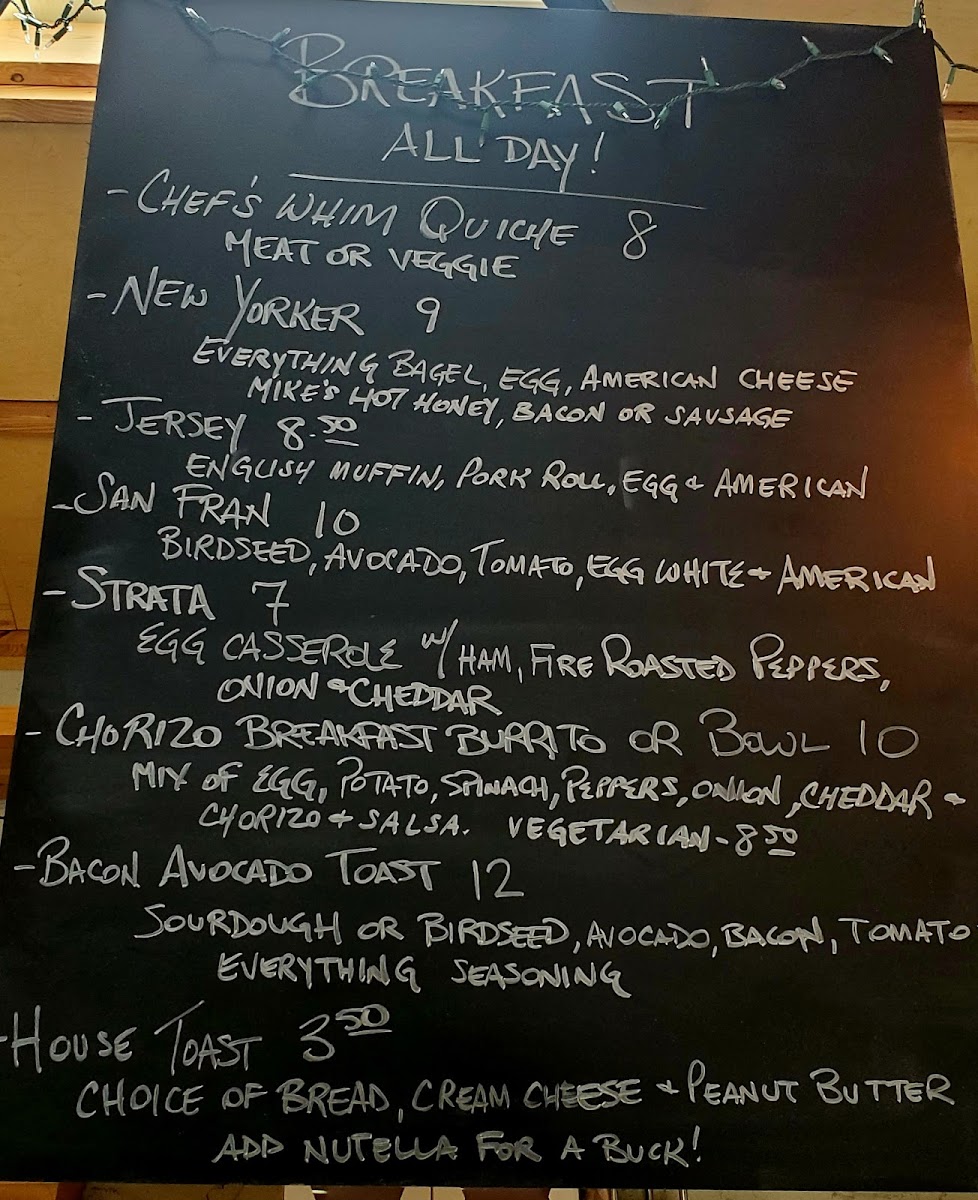 BREAKFAST
ALL DAY!
- CHEF'S WHIM QUICHE 8
MEAT OR VEGGIE
- NEW YORKER 9
EVERYTHING BAGEL, EGG, AMERICAN CHEESE
MIKE'S HOT HONEY, BACON OR SAUSAGE
- JERSEY 8.50
ENGLISH MUFFIN, PORK ROLL, EGG & AMERICAN
- SAN FRAN 10
BIRDSEED, AVOCADO, TOMATO, EGG WHITE & AMERICAN
- STRATA 7
EGG CASSEROLE W/ HAM, FIRE ROASTED PEPPERS,
ONION & CHEDDAR
- CHORIZO BREAKFAST BURRITO OR BOWL 10
MIX OF EGG, POTATO, SPINACH, PEPPERS, ONION, CHEDDAR &
CHORIZO & SALSA. VEGETARIAN - 8 50
- BACON AVOCADO TOAST 12
SOURDOUGH OR BIRDSEED, AVOCADO, BACON, TOMATO
EVERYTHING SEASONING
- HOUSE TOAST 3 50
CHOICE OF BREAD, CREAM CHEESE & PEANUT BUTTER
ADD NUTELLA FOR A BUCK!